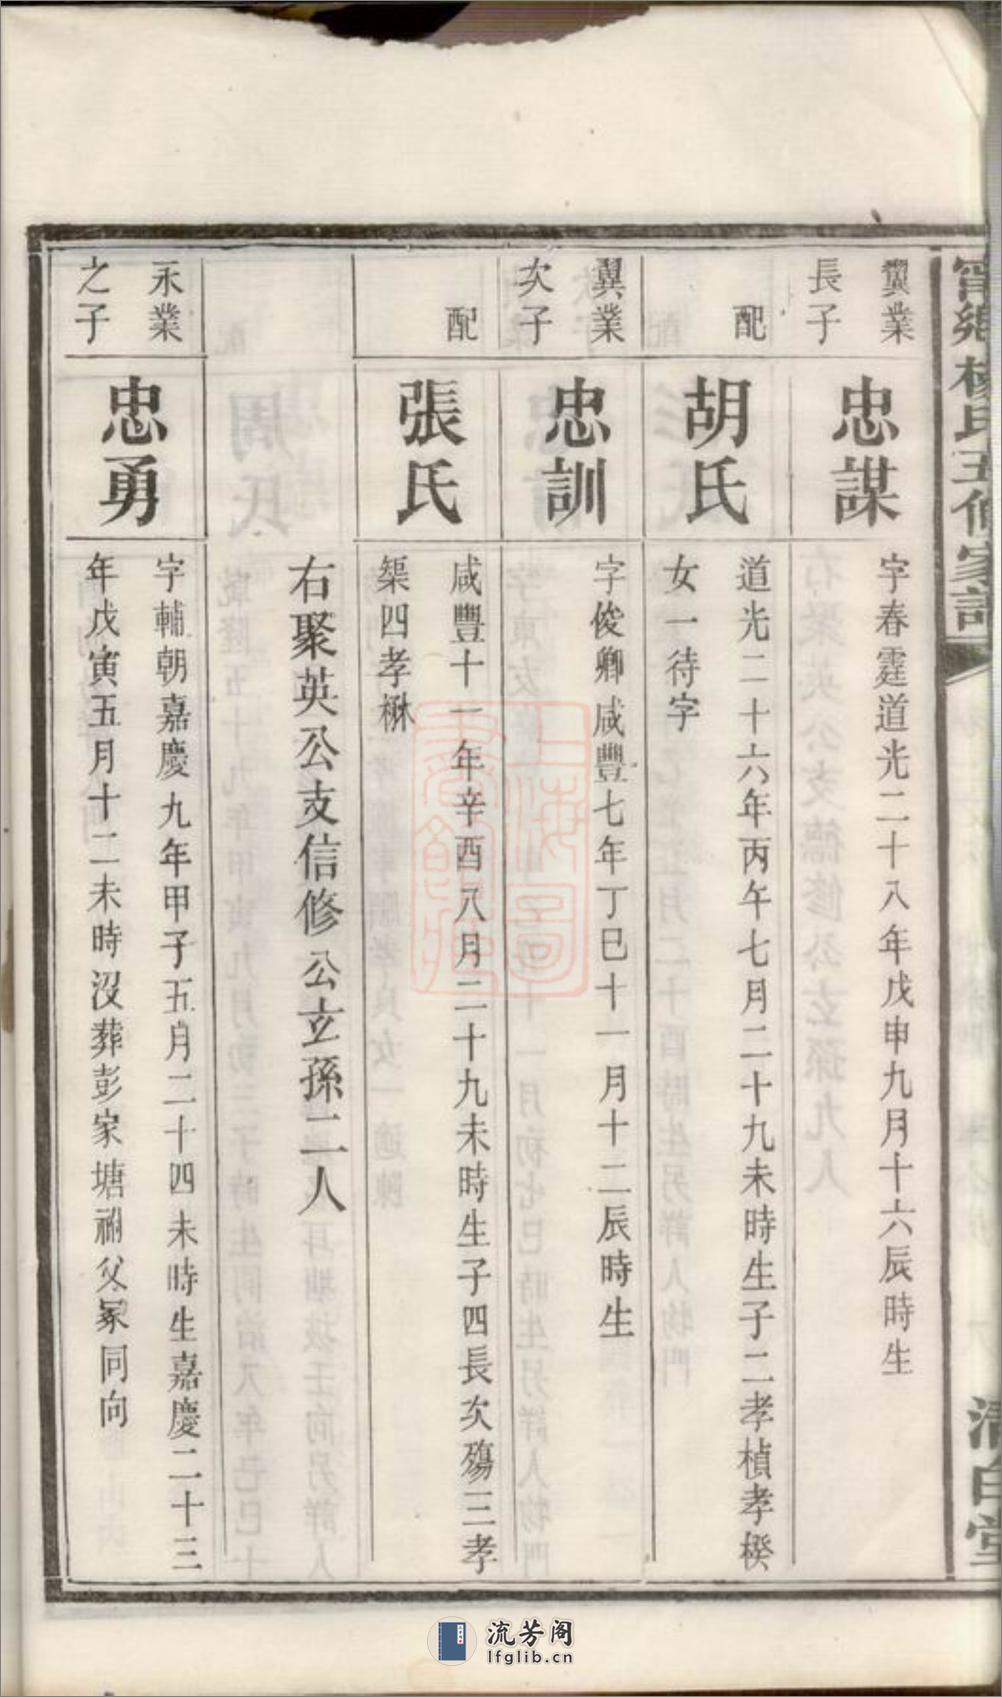 寧鄉楊氏五修家譜
清白堂
翼業
長子
忠謀
字春霆道光二十八年戊申九月十六辰時生
配
胡氏
道光二十六年丙午七月二十九未時生子二孝楨孝楑
女一待字
翼業
次子
忠訓
字俊卿咸豐七年丁巳十一月十二辰時生
配
張氏
咸豐十一年辛酉八月二十九未時生子四長次殤三孝
榘四孝楙
右聚英公支信修公玄孫二人
永業
之子
忠勇
字輔朝嘉慶九年甲子五月二十四未時生嘉慶二十三
年戊寅五月十二未時沒葬彭家塘祔父冢同向
上海圖
書館藏
流芳阁
lfglib.cn